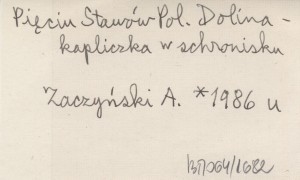 Pięciu Stawów Pol. Dolina -
kapliczka w schronisku
Zaczyński A. *1986 u